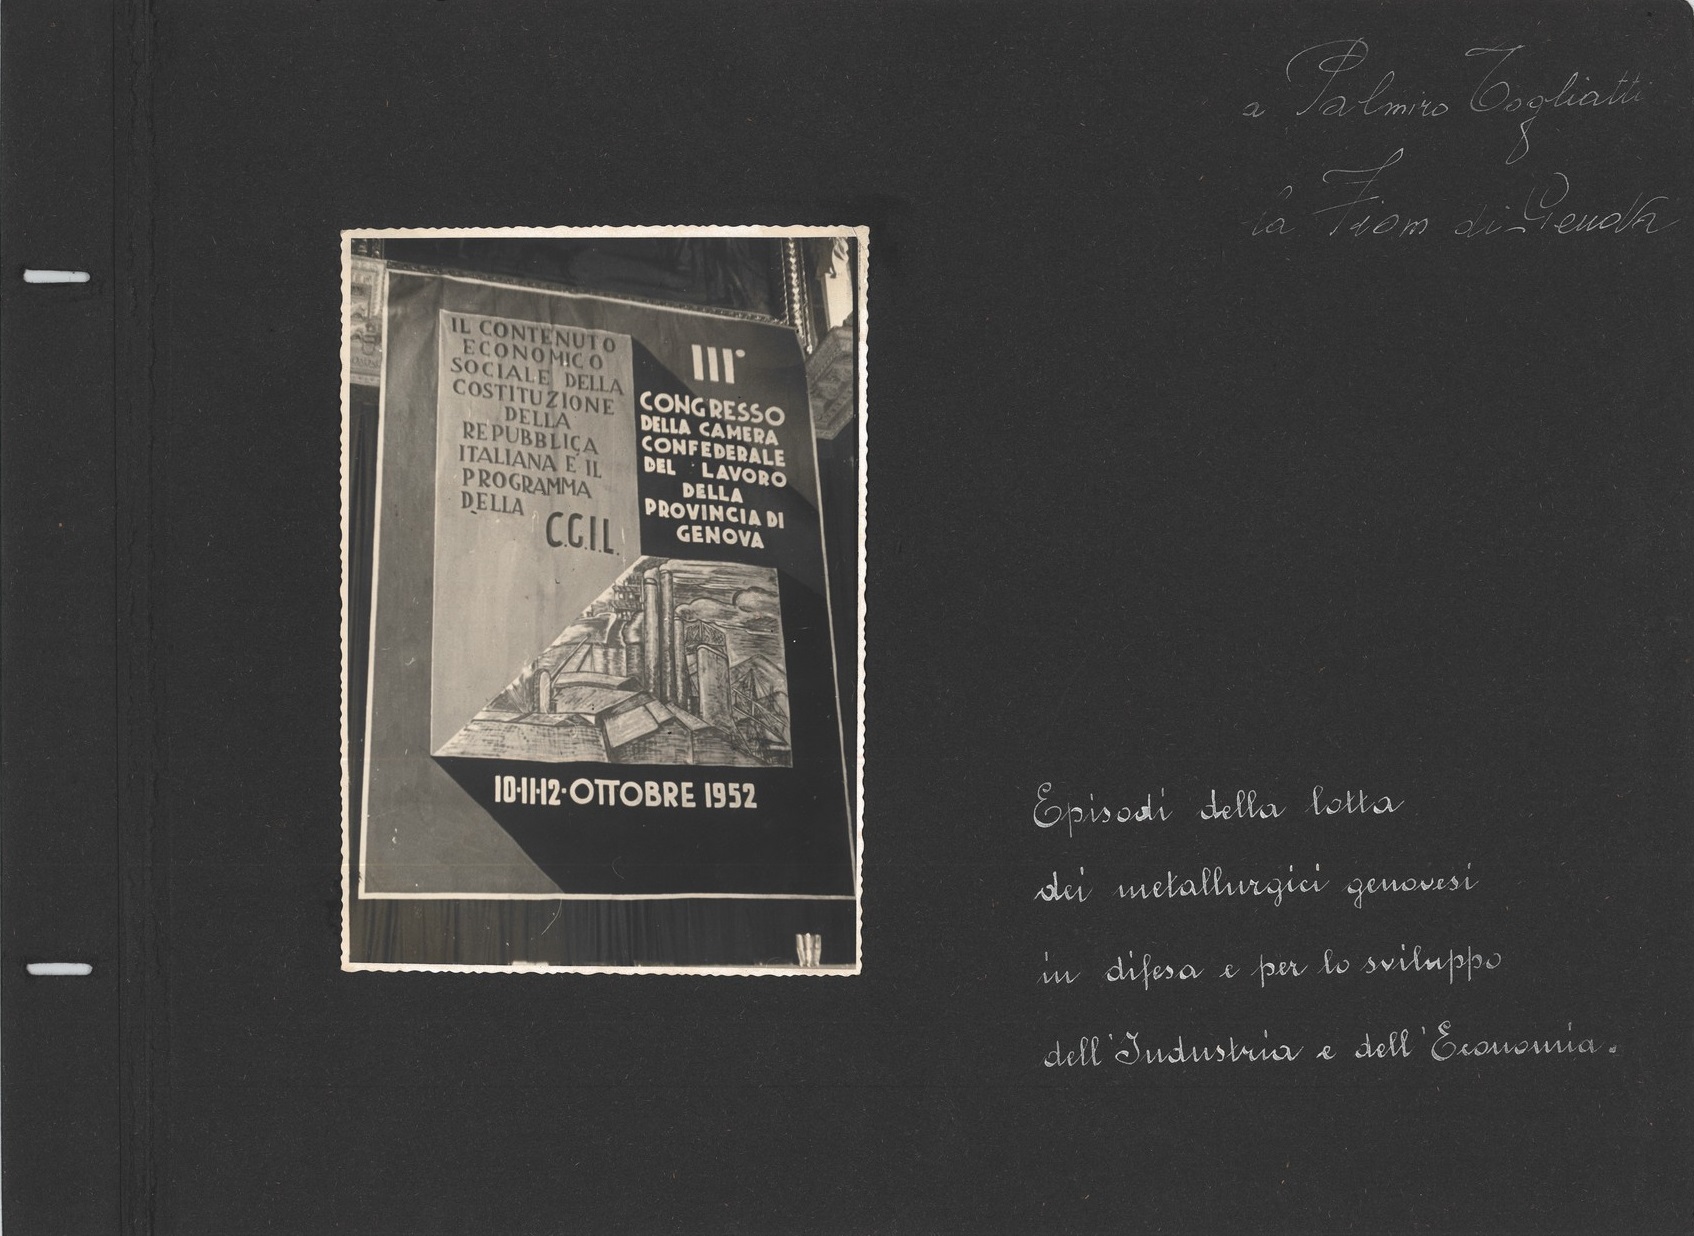 a Palmiro Togliatti
la Fiom di Genova
IL CONTENUTO
ECONOMICO
SOCIALE DELLA
COSTITUZIONE
DELLA
REPUBBLICA
ITALIANA E IL
PROGRAMMA
DELLA
C.G.I.L.
III°
CONGRESSO
DELLA CAMERA
CONFEDERALE
DEL LAVORO
DELLA
PROVINCIA DI
GENOVA
10-11-12-OTTOBRE 1952
Episodi della lotta
dei metallurgici genovesi
in difesa e per lo sviluppo
dell'Industria e dell'Economia.